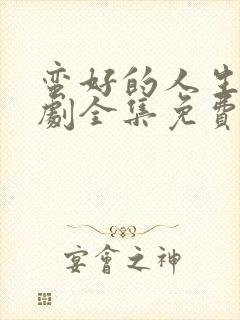 蛮好的人生
劇全集免費
宴會之神